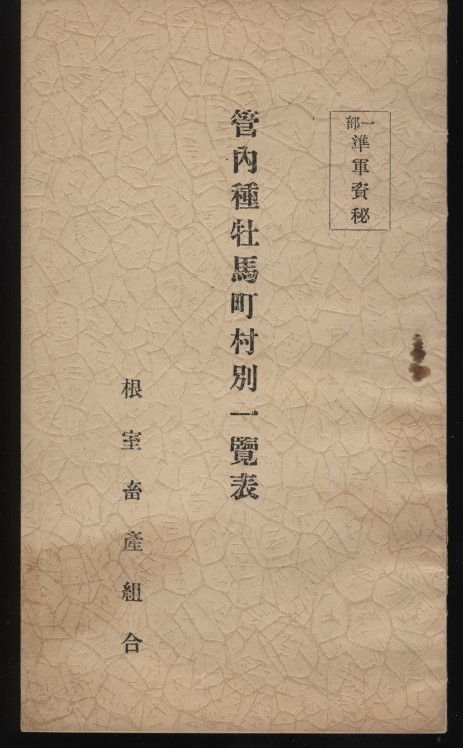 一部
準軍資秘
管内種牡馬町村別一覽表
根室畜產組合